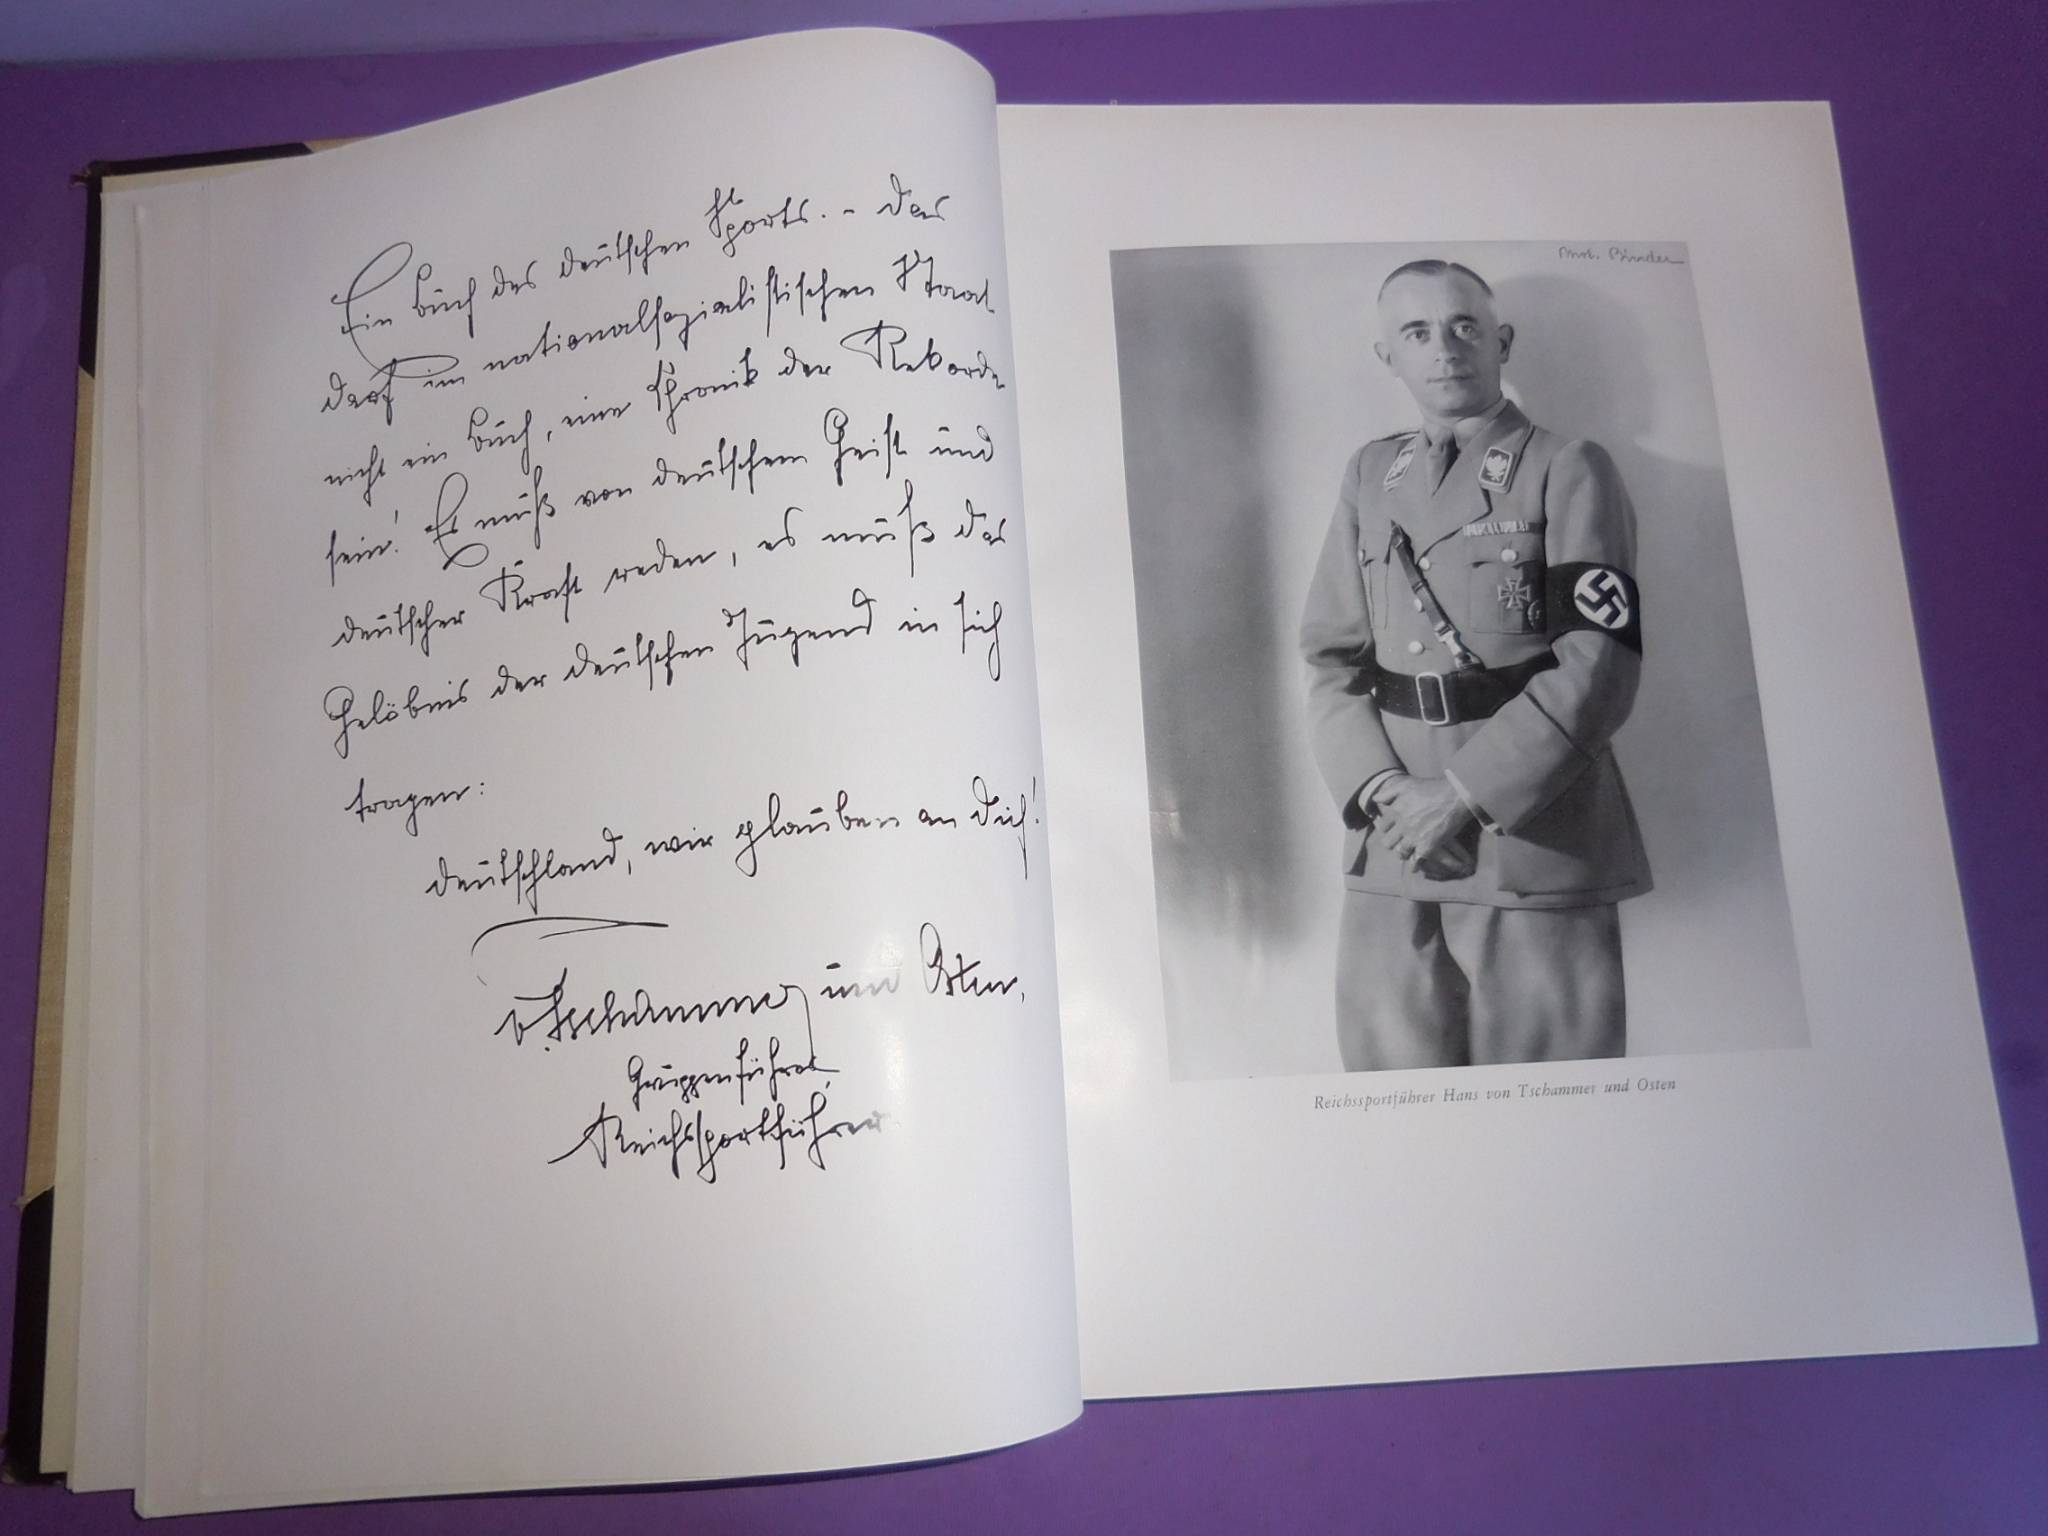 Ein Buch des deutschen Sports. - das
darf im nationalsozialistischen Staat
nicht ein Buch, eine Chronik der Rekorde
sein! Es muß von deutschem Geist und
deutscher Kraft reden, es muß das
Gelöbnis der deutschen Jugend in sich
tragen:
Deutschland, wir glauben an Dich!
v. Tschammer und Osten,
Gruppenführer
Reichssportführer
Binder
Reichssportführer Hans von Tschammer und Osten